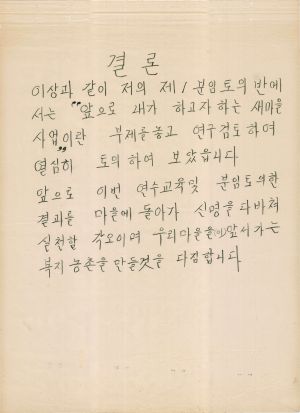 결론
이상과 같이 저의 제1분임토의 반에
서는 "앞으로 내가 하고자 하는 새마을
사업"이란 부제를 놓고 연구검토하여
열심히 토의 하여 보았읍니다
앞으로 이번 연수교육및 분임토의한
결과를 마을에 돌아가 신명을 다바쳐
실천할 각오이며 우리마을을 앞서가는
복지 농촌을 만들것을 다짐합니다